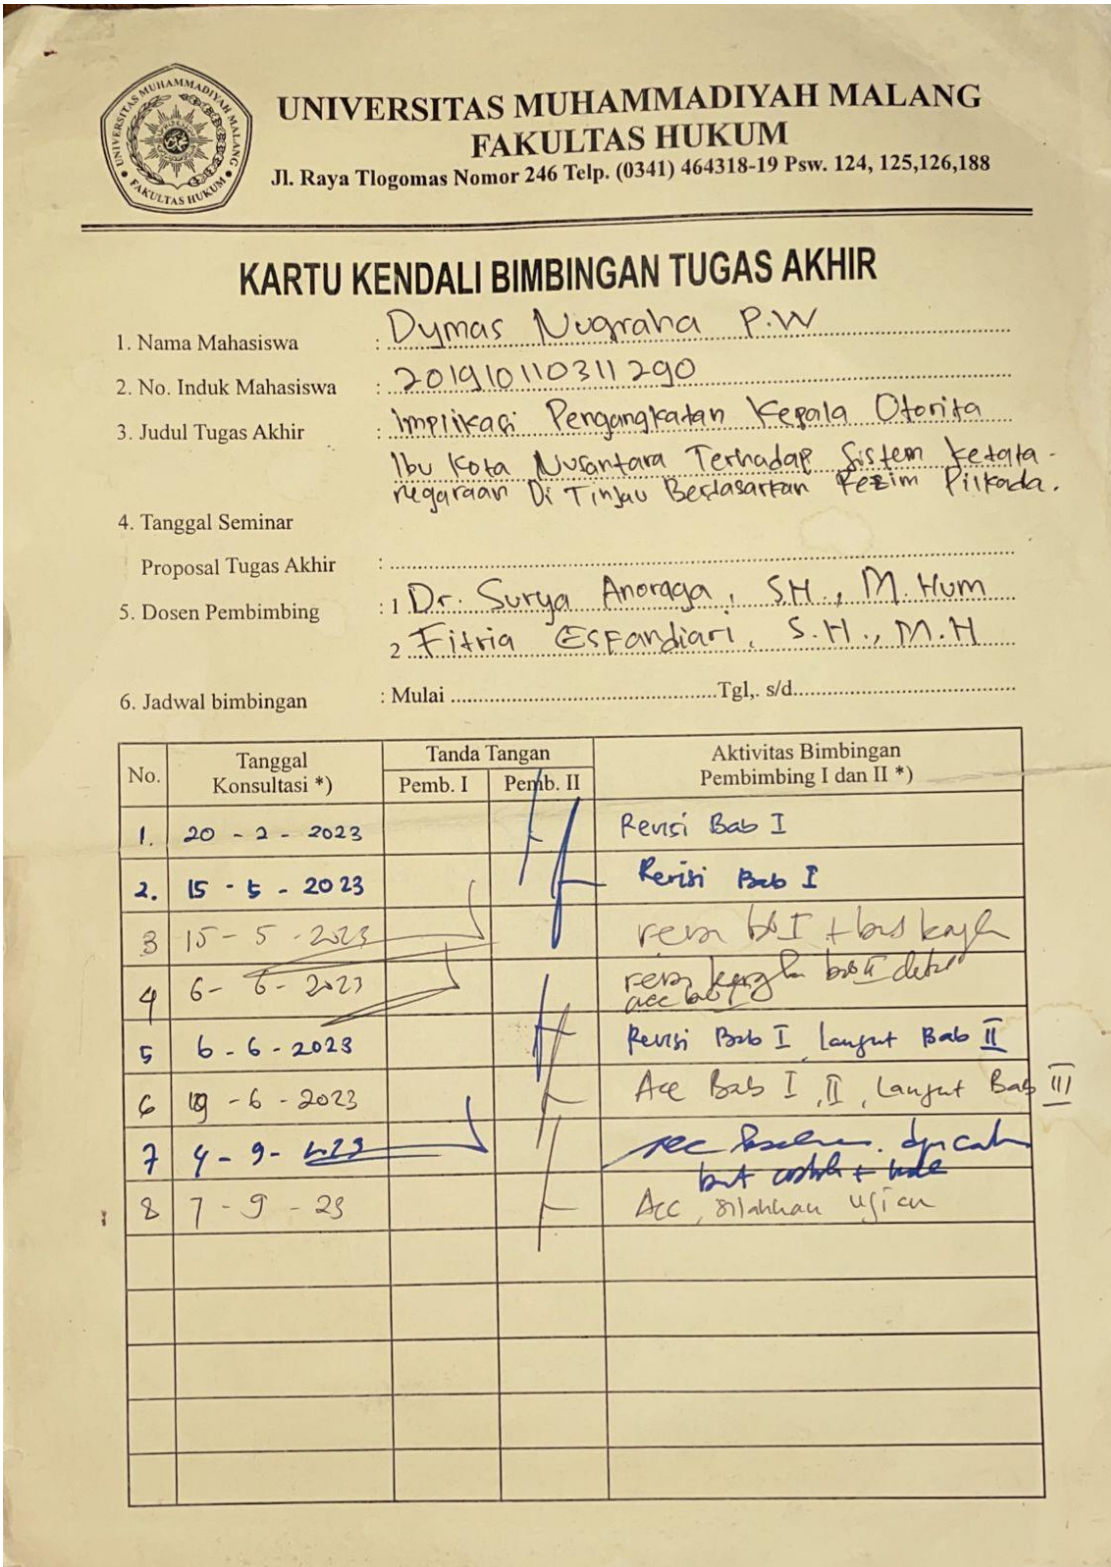 UNIVERSITAS MUHAMMADIYAH MALANG
FAKULTAS HUKUM
UNIVERSITAS MUHAMMADIYAH MALANG
FAKULTAS HUKUM
Jl. Raya Tlogomas Nomor 246 Telp. (0341) 464318-19 Psw. 124, 125,126,188
KARTU KENDALI BIMBINGAN TUGAS AKHIR
1. Nama Mahasiswa : Dymas Nugraha P.W
2. No. Induk Mahasiswa : 201910110311290
3. Judul Tugas Akhir : Implikasi Pengangkatan Kepala Otorita
Ibu Kota Nusantara Terhadap Sistem Ketata-
negaraan Di Tinjau Berdasarkan Rezim Pilkada.
4. Tanggal Seminar
Proposal Tugas Akhir :
5. Dosen Pembimbing : 1 Dr. Surya Anoraga, SH., M.Hum
2 Fitria Esfandiari, S.H., M.H
6. Jadwal bimbingan : Mulai ........ Tgl,. s/d........
No. Tanggal Konsultasi *) Tanda Tangan Aktivitas Bimbingan Pembimbing I dan II *)
Pemb. I Pemb. II
1. 20 - 2 - 2023 Revisi Bab I
2. 15 - 5 - 2023 Revisi Bab I
3 15 - 5 - 2023
4 6 - 6 - 2023
5 6 - 6 - 2023 Revisi Bab I, lanjut Bab II
6 19 - 6 - 2023 Acc Bab I, II, Lanjut Bab III
7 4 - 9 - 2023
8 7 - 9 - 23 Acc, silahkan ujian